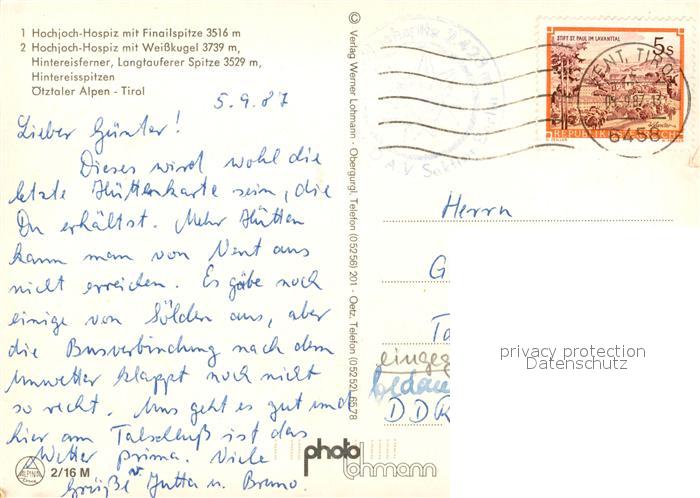 1 Hochjoch-Hospiz mit Finailspitze 3516 m
2 Hochjoch-Hospiz mit Weißkugel 3739 m,
Hintereisferner, Langtauferer Spitze 3529 m,
Hintereisspitzen
Ötztaler Alpen - Tirol
5.9.87
Lieber Günter!
Dieses wird wohl die
letzte Hüttenkarte sein, die
Du erhältst. Mehr Hütten
kann man von Vent aus
nicht erreichen. Es gäbe noch
einige von Sölden aus, aber
die Busverbindung nach dem
Unwetter klappt noch nicht
so recht. Uns geht es gut und
hier am Talschluß ist das
Wetter prima. Viele
Grüße v. Jutta u. Bruno.
ALPINA
2/16 M
© Verlag Werner Lohmann · Obergurgl, Telefon (05256) 201 · Oetz, Telefon (05252) 6578
photo
lohmann
STIFT ST. PAUL IM LAVANTTAL
5s
REPUBLIK
VENT, TIROL
6458
A.V. Sektion
Herrn
G
Ta
eingeg
bedau
DDR
privacy protection
Datenschutz